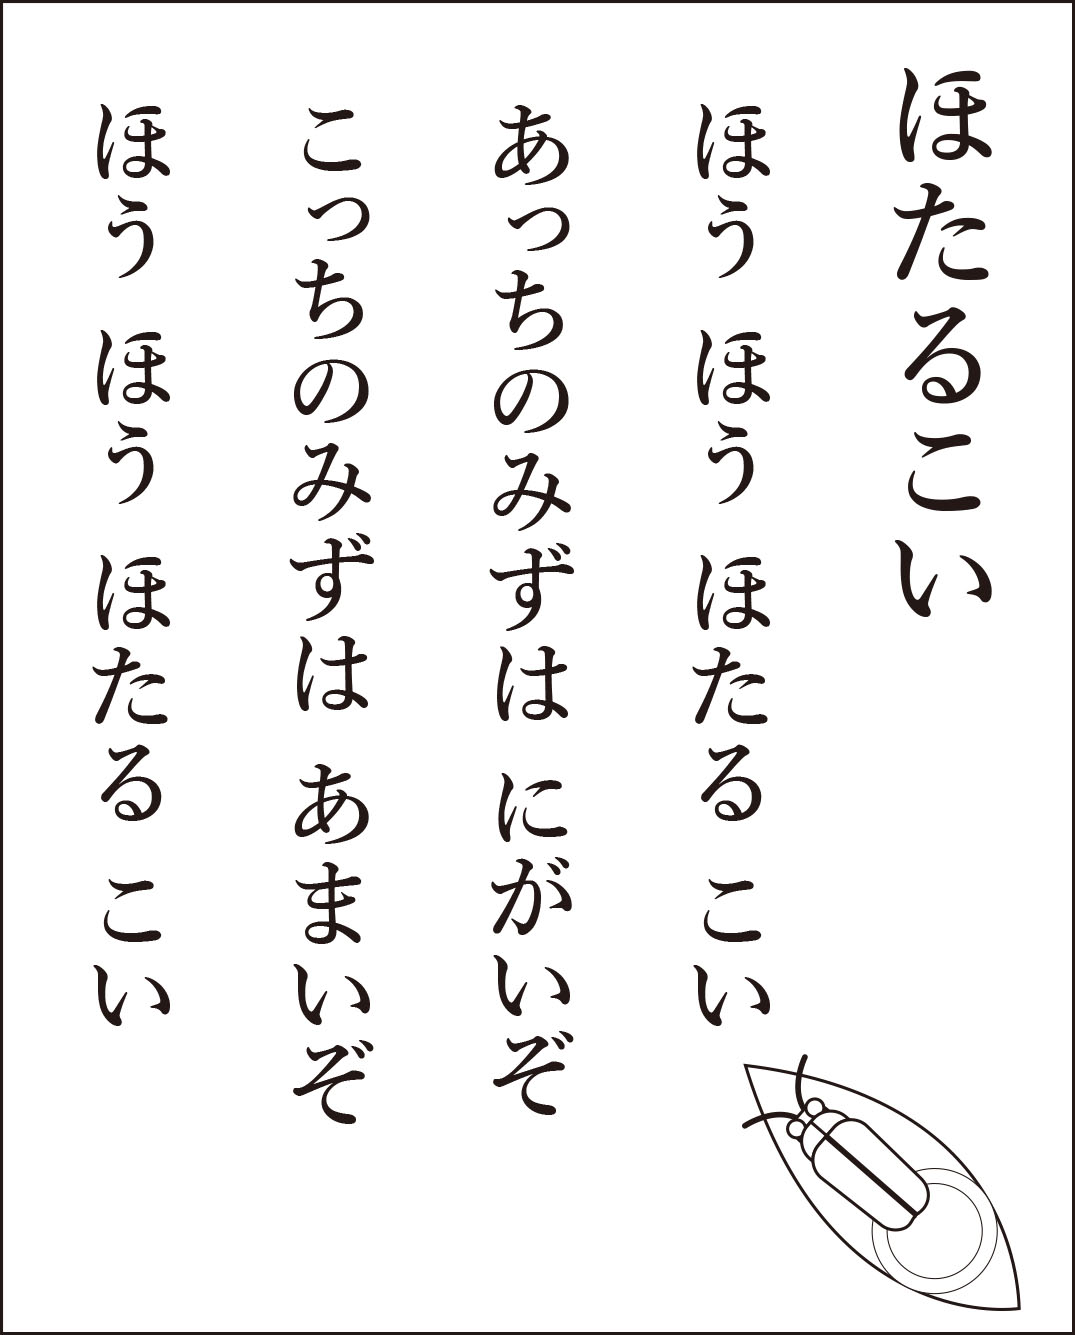 ほたるこい
ほう ほう ほたる こい
あっちのみずは にがいぞ
こっちのみずは あまいぞ
ほう ほう ほたる こい